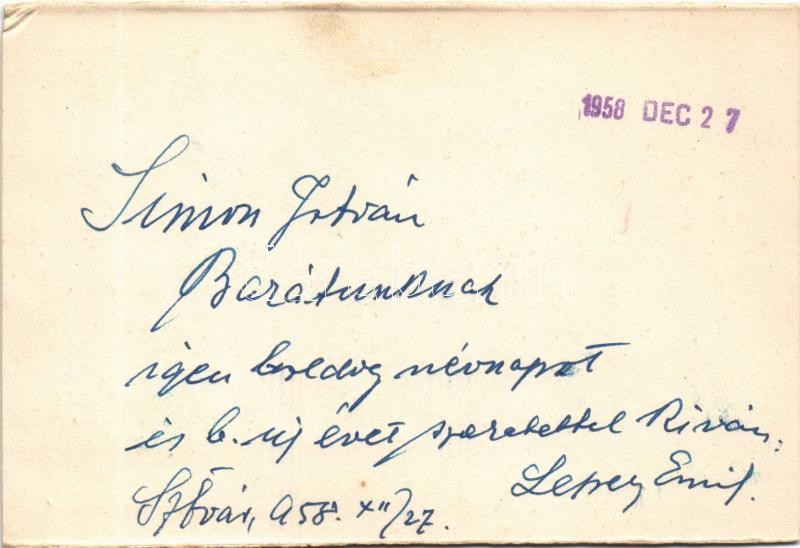 1958 DEC 27
Simon István
Barátunknak
igen boldog névnapot
és b. új évet szeretettel kíván:
Emil.
Szfvár, 958. XII/27.